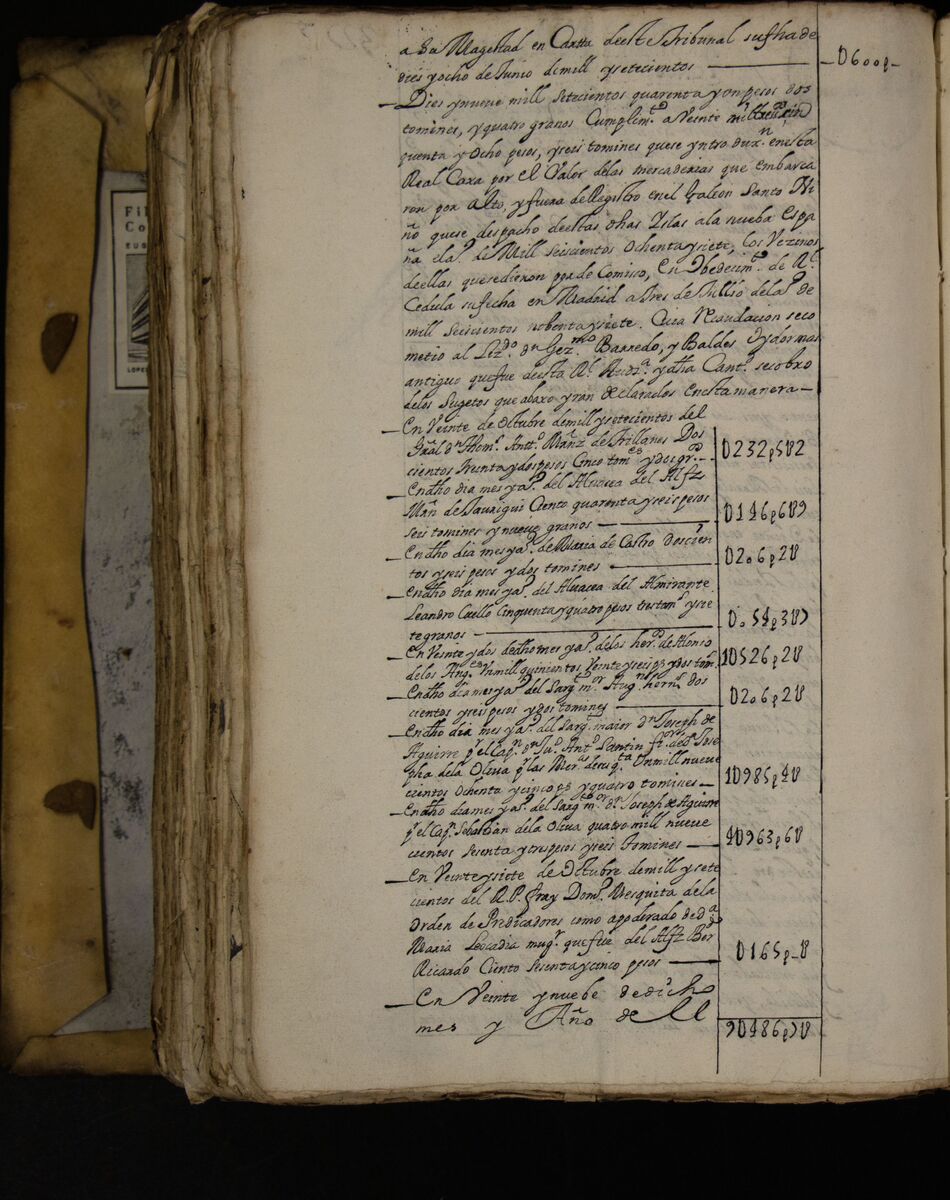 a Su Magestad en Carta deeste Tribunal su fha de
dies yocho de Junio de mill ysetecientos — D600p
Dies ynueve mill setecientos quarenta yon pesos dos
tomines, yquatro granos Cumplim.to a Veinte mill
quenta y Ocho pesos, yseis tomines quese yntro dux.n enesta
Real Caxa por el Valor delas mercaderias que embarca
ron por alto, y fuera del Registro en el Galeon Santo Ni
ño quese despacho deestas dhas Yslas ala nueba Espa
ña ela.o de Mill seiscientos Ochenta ysiete, los Vezinos
deellas que sedieron por de Comisso, En Obedecim.to de R.l
Cedula su fecha en Madrid a tres de Jullio dela.o de
mill seiscientos nobenta ysiete. Cuia Recaudacion seco
metio al Liz.do d.n Ger.mo Barredo, y Baldes Oydor mas
antiguo quefue deesta R.l Aud.a ydha Cant.d secobro
delos Sugetos que abaxo yran declarados enesta manera —
En Veinte de Octubre demill ysetecientos del
Gral d.n Thom.s Ant.o Mañz de Trillanes Dos
cientos treinta ydos pesos Cinco tom.es ydos gr.s — D232p5U2
En dho dia mes ya.o del Alvacea del Alfz
Mñ de Jauregui Ciento quarenta yseis pesos
seis tomines y nueve granos — D146p6U9
En dho dia mes ya.o de Maria de Castro doscien
tos yseis pesos y dos tomines — D206p2U
En dho dia mes ya.o del Alvacea del Almirante
Leandro Cuello Cinquenta yquatro pesos tres tom.s ysie
te granos — D054p3U7
En Veinte ydos dedho mes ya.o delos her.os de Alonso
delos Ang.es Vn mill quinientos Veinte yseis ps ydos tom.s 1D526p2U
En dho dia mes ya.o del Sarg.to m.or Aug.n hern.z dos
cientos yseis pesos y dos tomines — D206p2U
En dho dia mes ya.o del Sarg.to maior D.n Joseph de
Aguirre p.r el Cap.n D.n Ju.o Ant.o Pantin de d.a Jose
pha dela Oliva p.r las Mer.as Vnmill nueve
cientos Ochenta ycinco ps y quatro tomines — 1D985p4U
En dho dia mes ya.o del Sarg.to m.or D.n Joseph de Aguirre
p.r el Cap.n Sebastian dela Oliva quatro mill nueve
cientos sesenta ytres pesos yseis tomines — 4D963p6U
En Veinte ysiete de Octubre demill ysete
cientos del R.P. fray Dom.o Mesquita dela
Orden de Predicadores como apoderado de d.a
Maria Leocadia mug.r quefue del Alfz Ber.do
Ricardo Ciento Sesenta ycinco pesos — D165p-U
En Veinte ynuebe de dicho
mes y Año de 9D486p7U